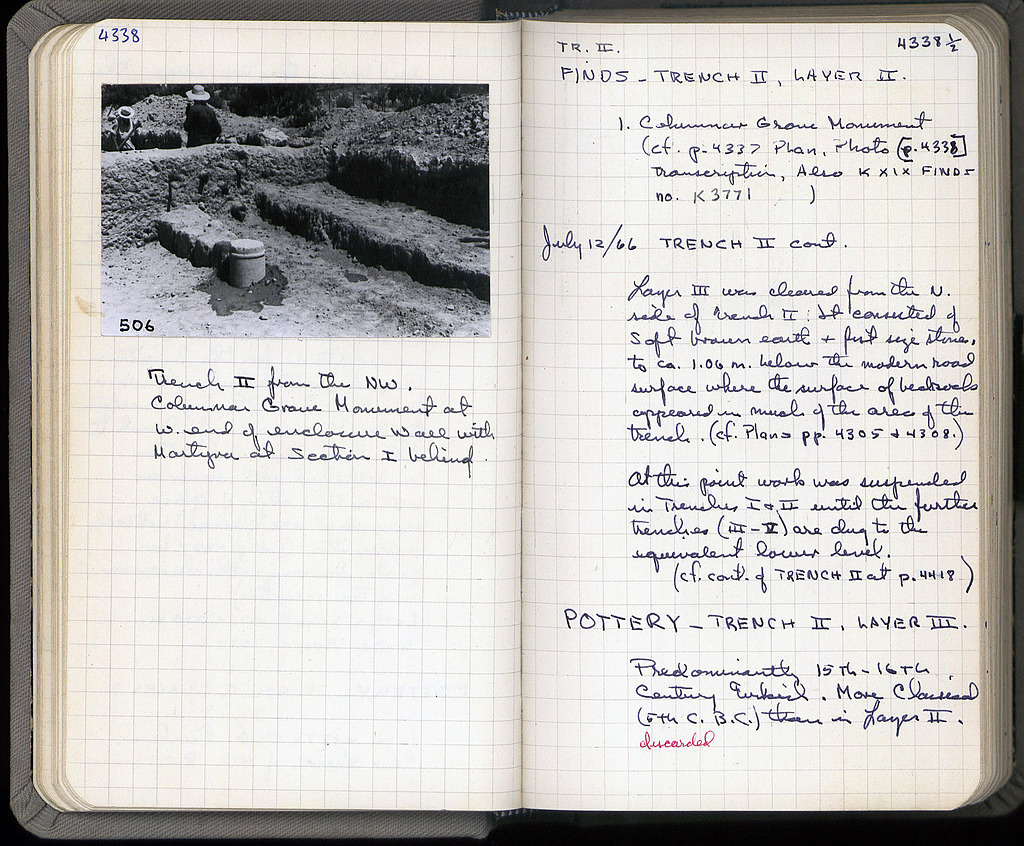 4338
506
Trench II from the NW.
Columnar Grave Monument at
W. end of enclosure wall with
Martyra at Section I behind.
TR. II.
4338 ½
FINDS - TRENCH II, LAYER II.
1. Columnar Grave Monument
(cf. p. 4337 Plan, Photo [p. 4338]
Transcription, Also K XIX FINDS
no. K3771 )
July 12/66 TRENCH II cont.
Layer III was cleared from the N.
side of Trench II: It consisted of
soft brown earth + fist size stones,
to ca. 1.06 m. below the modern road
surface where the surface of bedrock
appeared in much of the area of the
trench. (cf. Plans pp. 4305 + 4308.)
At this point work was suspended
in Trenches I + II until the further
trenches (III-V) are dug to the
equivalent lower level.
(cf. cont. of TRENCH II at p. 4418)
POTTERY - TRENCH II, LAYER III.
Predominantly 15Th-16Th
Century Turkish. More Classical
(5th C. B.C.) than in Layer II.
discarded